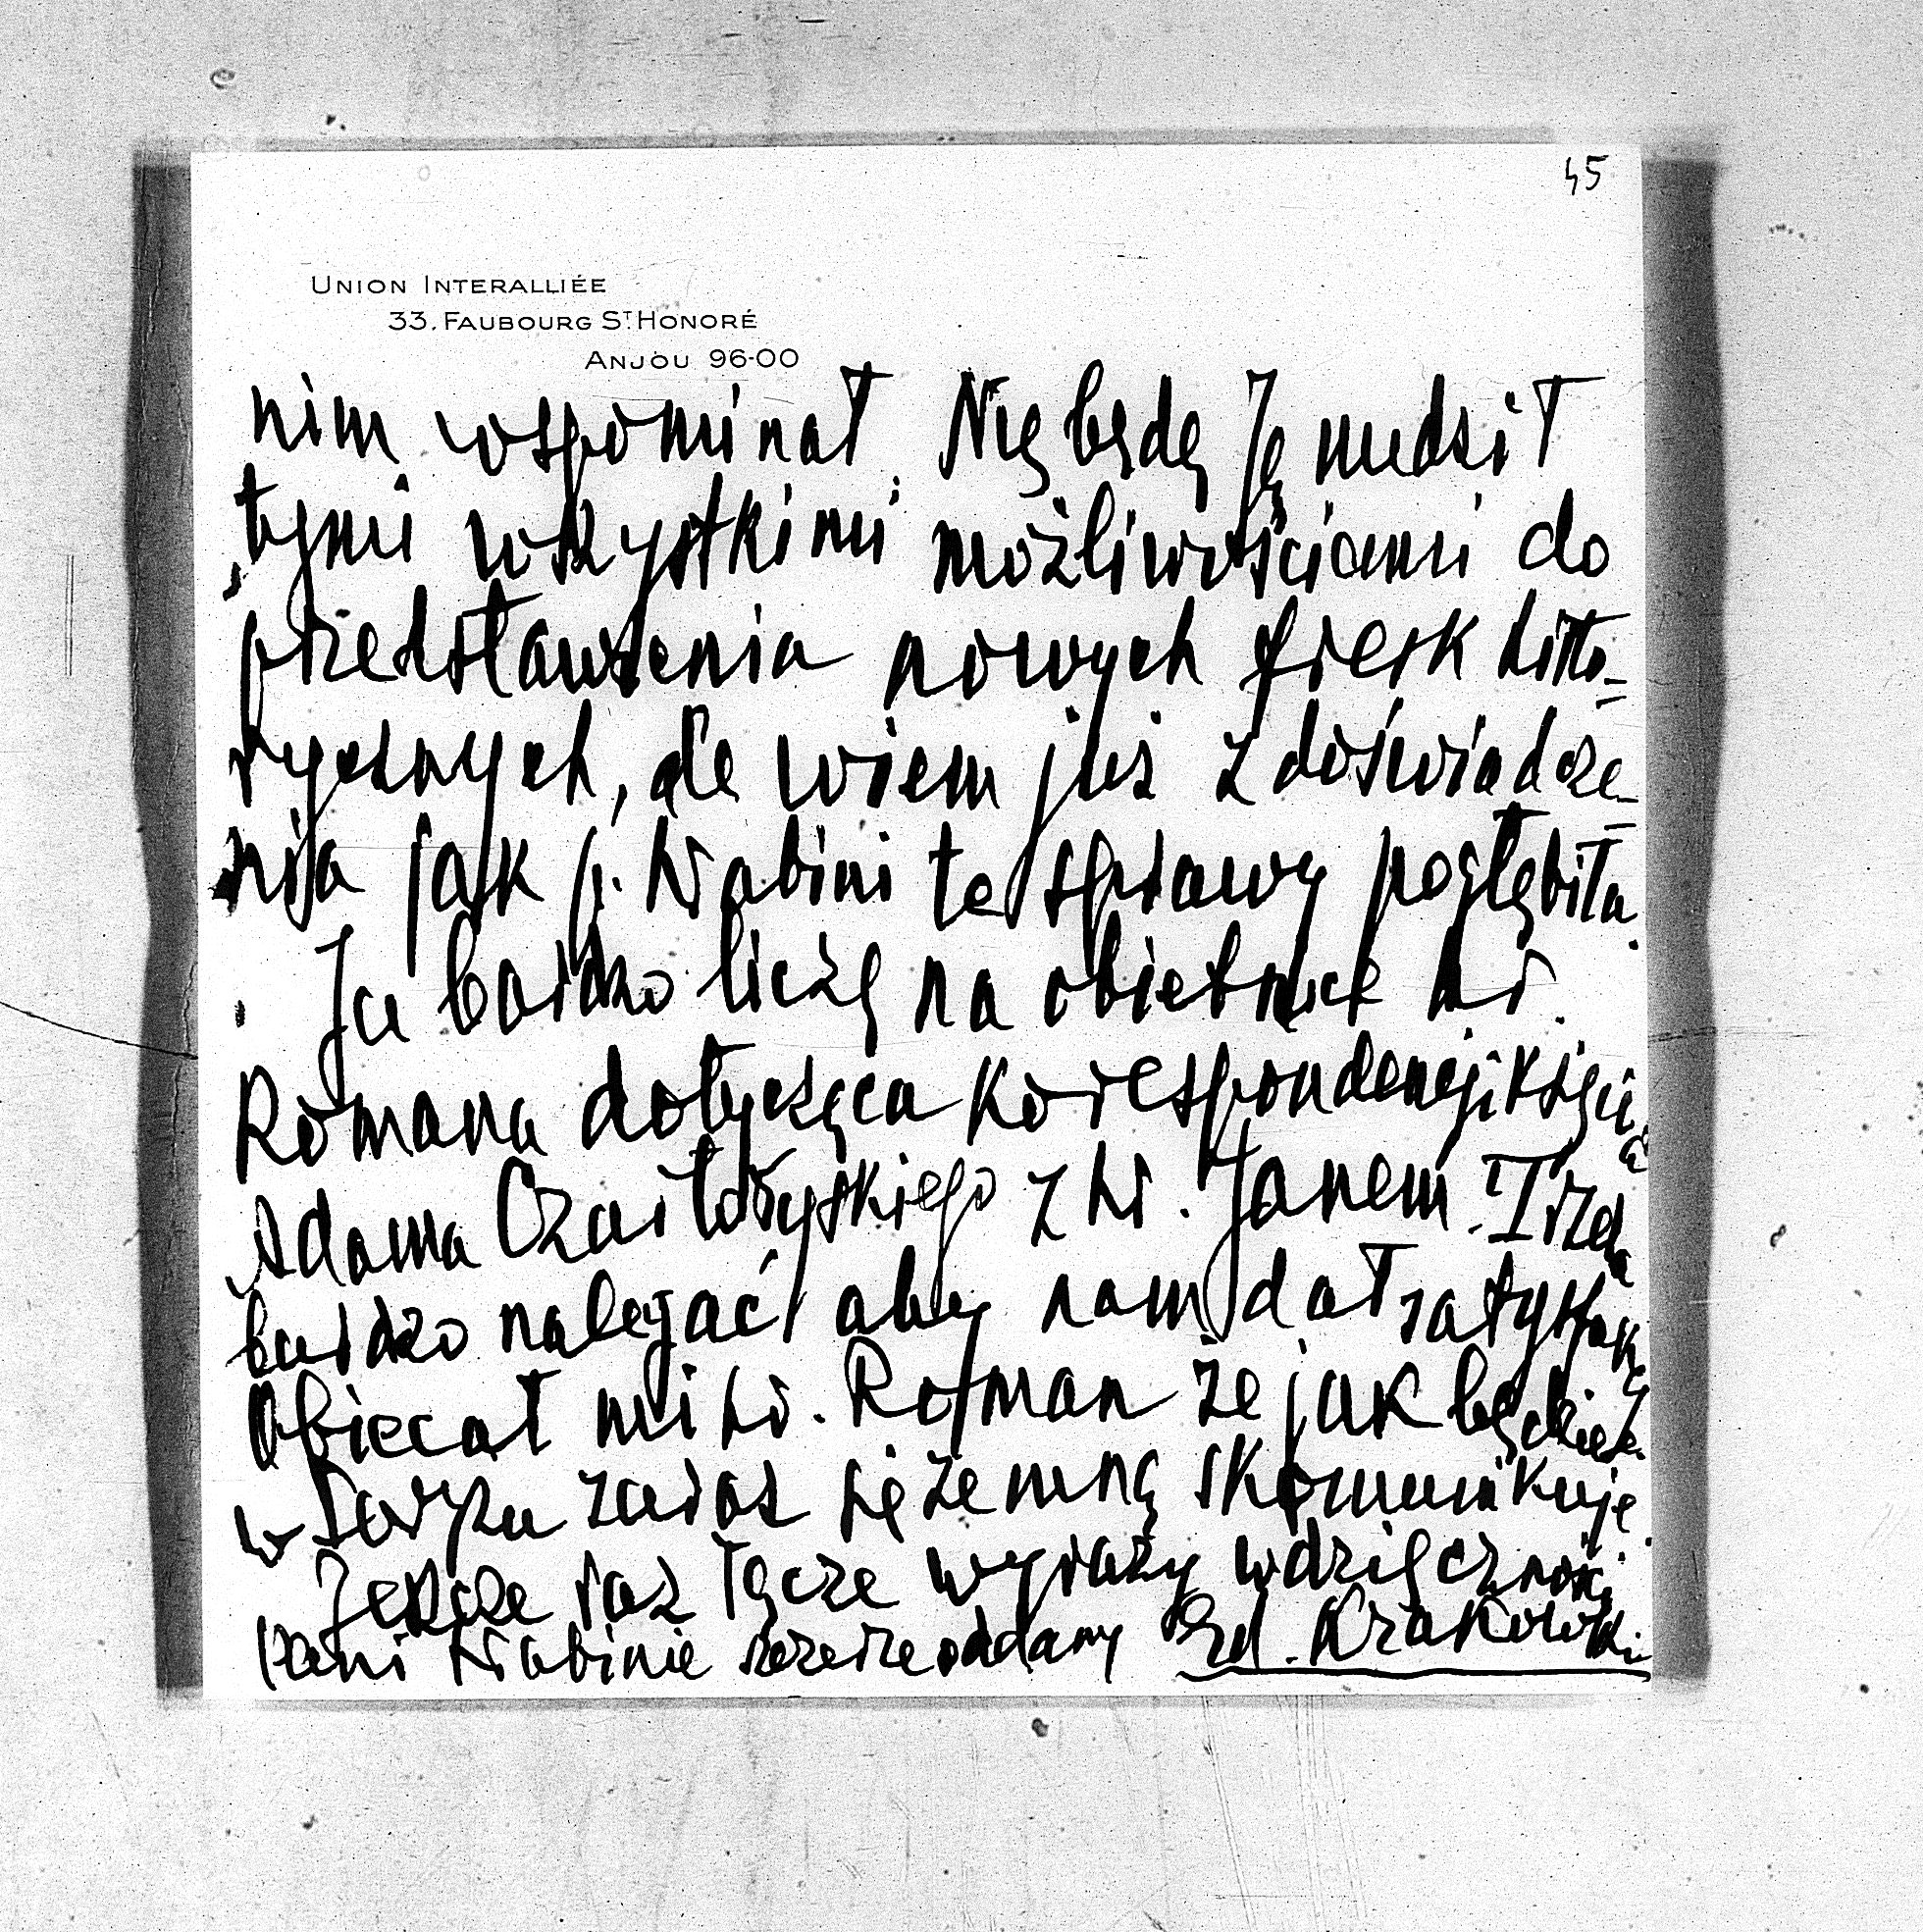 45
UNION INTERALLIÉE
33. FAUBOURG ST HONORÉ
ANJOU 96-00
nim wspominał. Nie będę Ją nudził
tymi wszystkimi możliwościami do
przedstawienia nowych fresk histo-
rycznych, ale wiem już z doświadcze-
nia jak p. Hrabini te sprawy pogłębiła.
Ja bardzo liczę na obietnicę Hr.
Romana dotyczącą korespondencji księcia
Adama Czartoryskiego z Hr. Janem. Trzeba
bardzo nalegać aby nam dał satysfakcję
Obiecał mi Hr. Roman że jak będzie
w Paryżu zaraz się ze mną skomunikuje.
Jeszcze raz łączę wyrazy wdzięczności
Pani Hrabinie szczerze oddany Ed. Krakowski